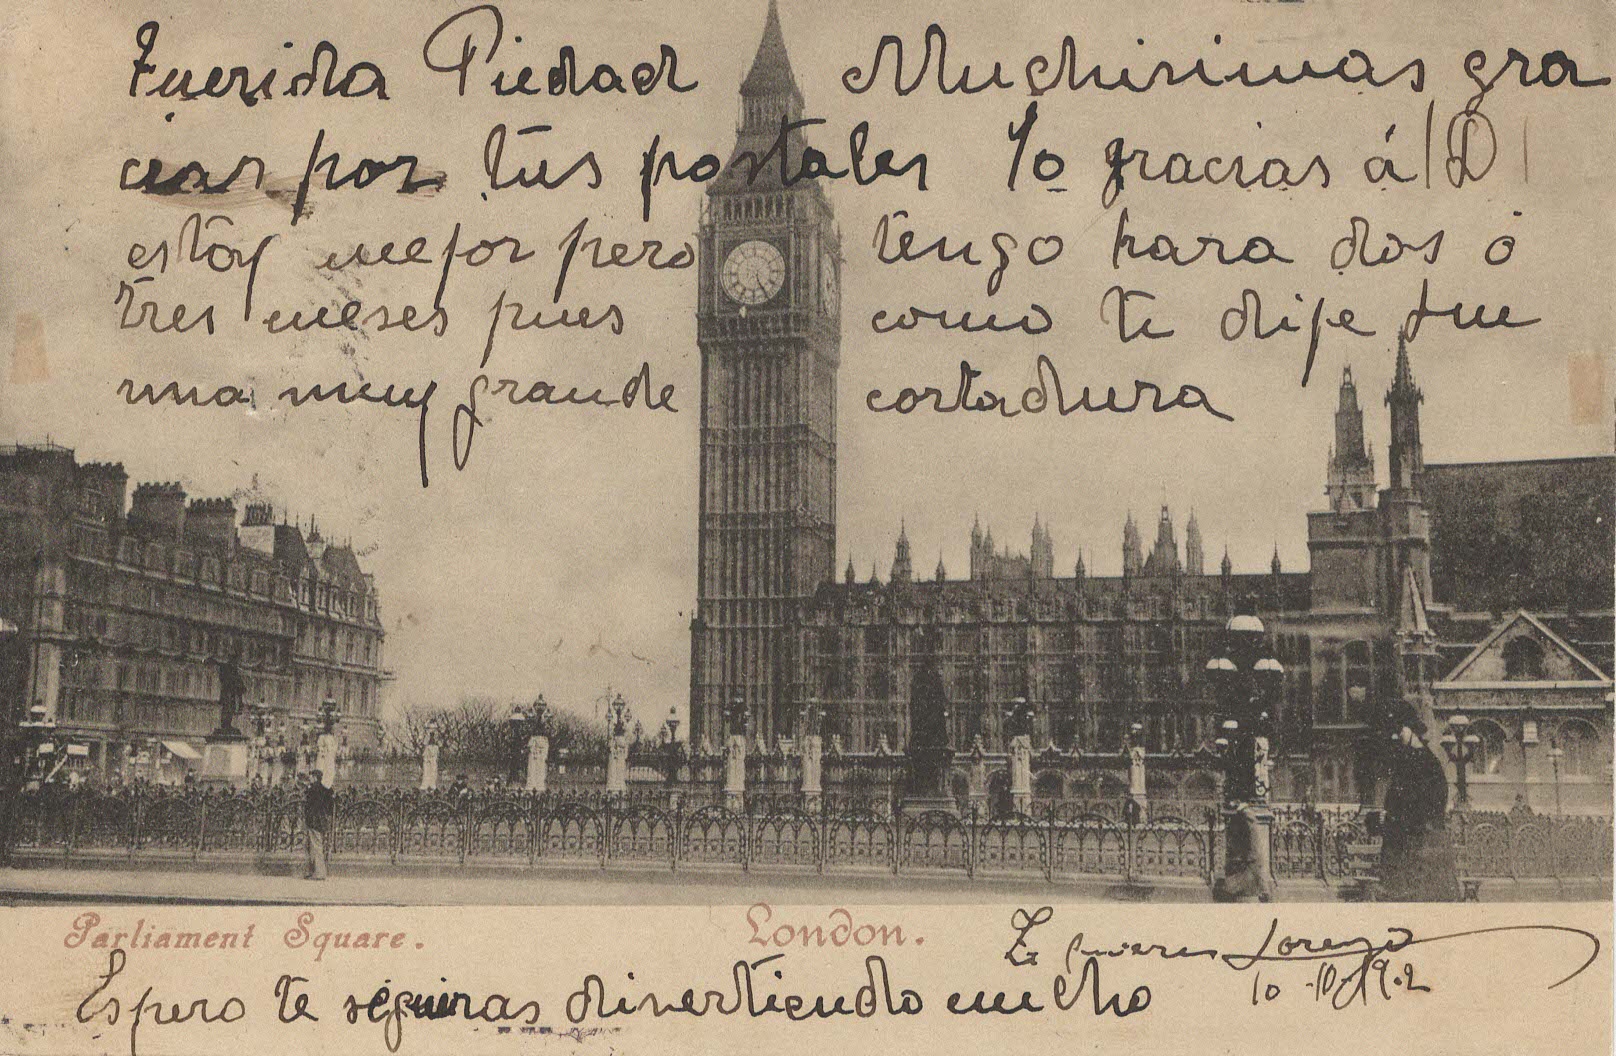 Querida Piedad Muchisimas gra
cias por tus postales Yo gracias á D
estoy mejor pero tengo para dos ó
tres meses pues como te dije fue
una muy grande cortadura
Parliament Square. London.
Te quiere Lorenzo
Espero te seguiras divertiendo mucho
10-10-1902